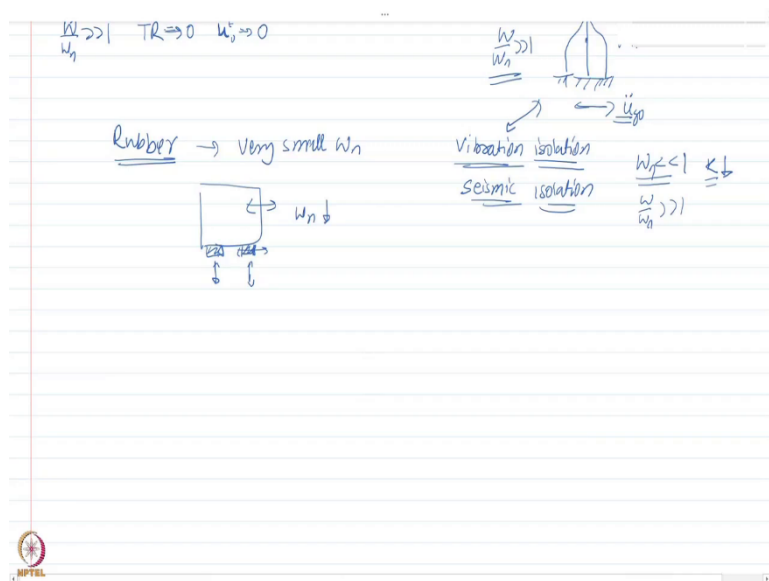 ω/ωn >>1 TR ⇒ 0 u₀ᵗ ⇒ 0
ω/ωn >>1
ü_go
Rubber → very small ωn
Vibration isolation
Seismic isolation
ωn<<1 K↓
ω/ωn >>1
ωn ↓
NPTEL